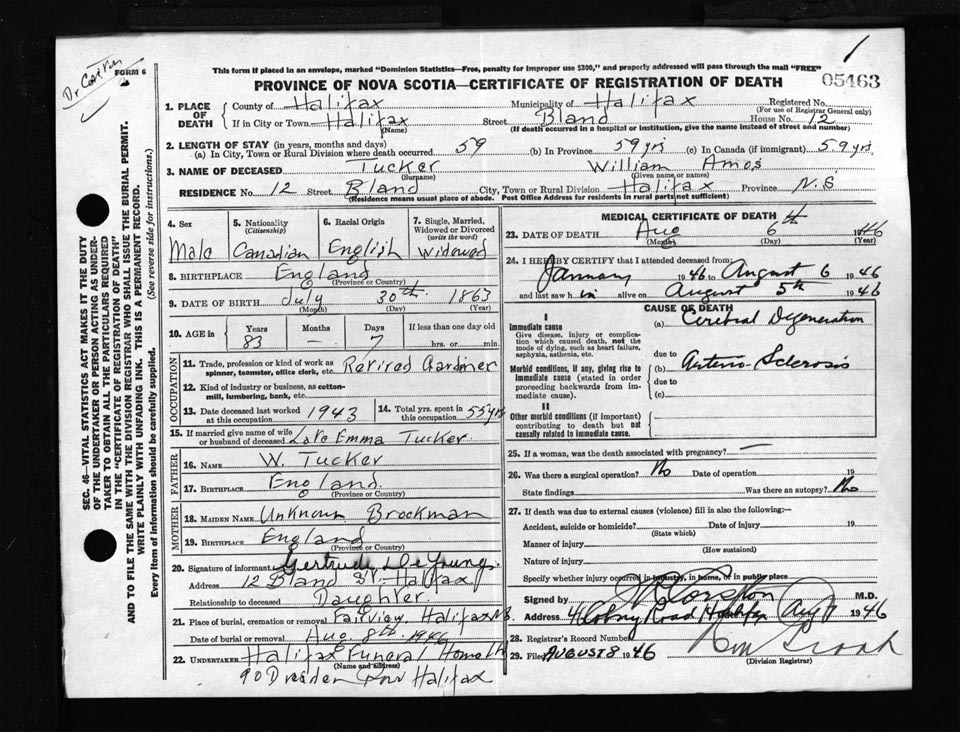 Dr Corston
FORM 6
1
This form if placed in an envelope, marked "Dominion Statistics—Free, penalty for improper use $300," and properly addressed will pass through the mail "FREE"
PROVINCE OF NOVA SCOTIA—CERTIFICATE OF REGISTRATION OF DEATH
05463
SEC. 46—VITAL STATISTICS ACT MAKES IT THE DUTY
OF THE UNDERTAKER OR PERSON ACTING AS UNDER-
TAKER TO OBTAIN ALL THE PARTICULARS REQUIRED
IN THE "CERTIFICATE OF REGISTRATION OF DEATH"
AND TO FILE THE SAME WITH THE DIVISION REGISTRAR WHO SHALL ISSUE THE BURIAL PERMIT.
WRITE PLAINLY WITH UNFADING INK. THIS IS A PERMANENT RECORD.
Every item of Information should be carefully supplied. (See reverse side for instructions.)
1. PLACE OF DEATH
County of Halifax Municipality of Halifax Registered No.
(For use of Registrar General only)
If in City or Town Halifax Street Bland House No. 12
(Name) (If death occurred in a hospital or institution, give the name instead of street and number)
2. LENGTH OF STAY (in years, months and days)
(a) In City, Town or Rural Division where death occurred 59 (b) In Province 59 yrs (c) In Canada (if immigrant) 59 yrs.
3. NAME OF DECEASED Tucker William Amos
(Surname) (Given name or names)
RESIDENCE No. 12 Street Bland City, Town or Rural Division Halifax Province N.S
(Residence means usual place of abode. Post Office Address for residents in rural parts not sufficient)
4. Sex 5. Nationality (Citizenship) 6. Racial Origin 7. Single, Married, Widowed or Divorced (write the word)
Male Canadian English Widowed
8. BIRTHPLACE England
(Province or Country)
9. DATE OF BIRTH July 30th 1863
(Month) (Day) (Year)
10. AGE in Years Months Days If less than one day old
83 — 7 hrs. or min.
OCCUPATION
11. Trade, profession or kind of work as Retired Gardiner
spinner, teamster, office clerk, etc.
12. Kind of industry or business, as cotton-
mill, lumbering, bank, etc.
13. Date deceased last worked at this occupation 1943 14. Total yrs. spent in this occupation 55 yrs
15. If married give name of wife or husband of deceased Late Emma Tucker
FATHER
16. NAME W. Tucker
17. BIRTHPLACE England.
(Province or Country)
MOTHER
18. MAIDEN NAME Unknown Brockman
19. BIRTHPLACE England
(Province or Country)
20. Signature of informant Gertrude DeYoung.
Address 12 Bland St. Halifax
Relationship to deceased Daughter.
21. Place of burial, cremation or removal Fairview, Halifax N.S.
Date of burial or removal Aug. 8th. 1946
22. UNDERTAKER Halifax Funeral Home
(Name and address)
90 Dresden Row Halifax
MEDICAL CERTIFICATE OF DEATH
23. DATE OF DEATH Aug 6th 1946
(Month) (Day) (Year)
24. I HEREBY CERTIFY that I attended deceased from:
January 1946 to August 6 1946
and last saw him alive on August 5th 1946
CAUSE OF DEATH
I
Immediate cause
Give disease, injury or complica-
tion which caused death, not the
mode of dying, such as heart failure,
asphyxia, asthenia, etc.
(a) Cerebral Degeneration
due to
Morbid conditions, if any, giving rise to
immediate cause (stated in order
proceeding backwards from im-
mediate cause).
(b) Arterio-Sclerosis
due to
(c)
II
Other morbid conditions (if important)
contributing to death but not
causally related to immediate cause.
25. If a woman, was the death associated with pregnancy? —
26. Was there a surgical operation? No Date of operation 19
State findings Was there an autopsy? No
27. If death was due to external causes (violence) fill in also the following:—
Accident, suicide or homicide? Date of injury 19
(State which)
Manner of injury
(How sustained)
Nature of injury
Specify whether injury occurred in industry, in home, or in public place
Signed by Corston M.D.
Address Road Halifax Aug 7 1946
28. Registrar's Record Number
29. Filed AUGUST 8 1946
(Division Registrar)